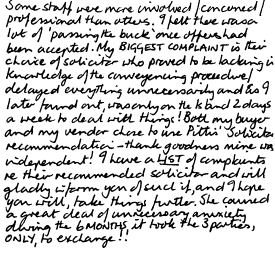 Some staff were more involved/concerned/
professional than others. I felt there was a
lot of 'passing the buck' once offers had
been accepted. My BIGGEST COMPLAINT is their
choice of solicitor who proved to be lacking in
knowledge of the conveyancing procedure/
delayed everything unnecessarily and as I
later found out, was only on the job and 2 days
a week to deal with things! Both my buyer
and my vendor chose to use Pittis' Solicitor
recommendation - thank goodness mine was
independent! I have a LIST of complaints
re their recommended solicitor and will
gladly inform you of such if, and I hope
you will, take things further. She caused
a great deal of unnecessary anxiety
during the 6 MONTHS, it took the 3 parties,
ONLY, to exchange!!